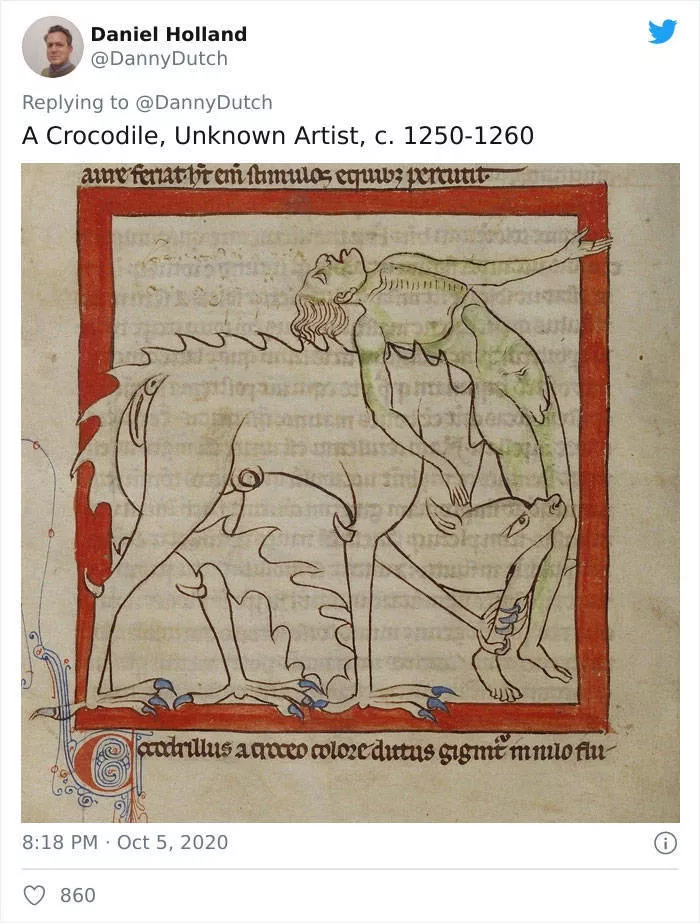 Daniel Holland
@DannyDutch
Replying to @DannyDutch
A Crocodile, Unknown Artist, c. 1250-1260
aure feriat hr̄ em̄ stimulos equibꝫ percutit
Cocodrillus a croceo colore dictus gignit̄ in nilo flu
8:18 PM · Oct 5, 2020
860